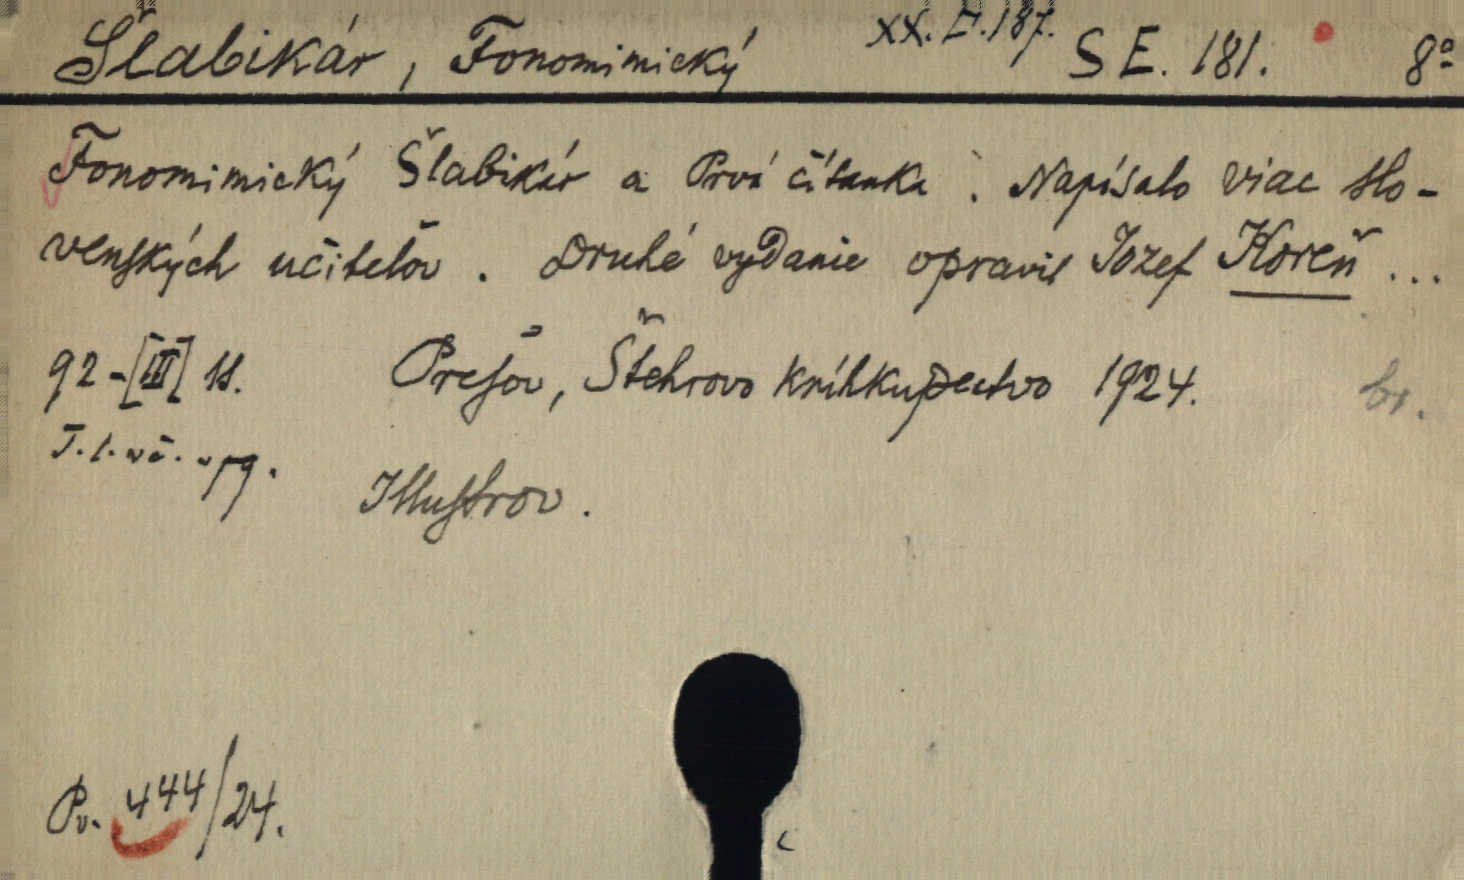 Šlabikár, Fonomimický XX. D. 187. SE. 181. 8º
Fonomimický Šlabikár a Prvá čítanka. Napísalo viac slo-
venských učitelov. Druhé vydanie opravil Jozef Koreň ...
92-[III] s. Prešov, Štehrovo kníhkupectvo 1924. br.
T. l. vč. vyg.
Illustrov.
Pv. 444/24.